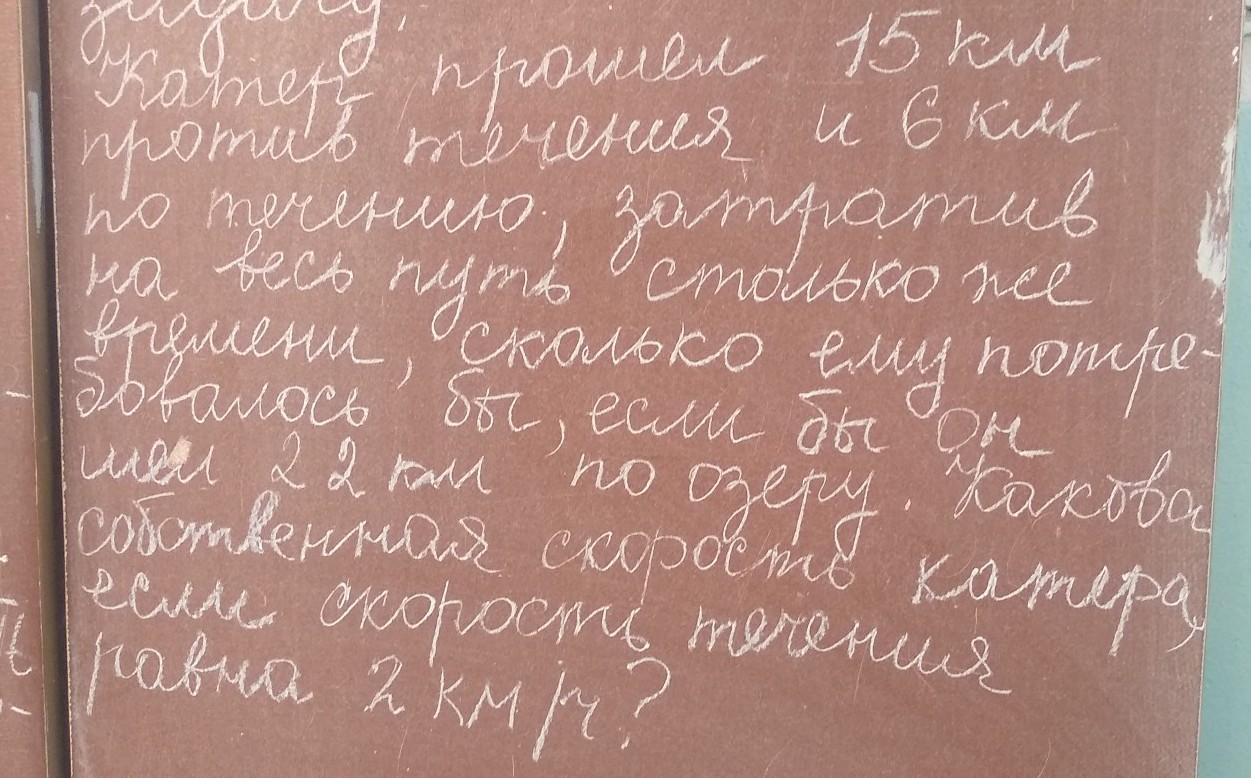 задачу.
Катер прошел 15 км
против течения и 6 км
по течению, затратив
на весь путь столько же
времени, сколько ему потре-
бовалось бы, если бы он
шел 22 км по озеру. Какова
собственная скорость катера,
если скорость течения
равна 2 км/ч?